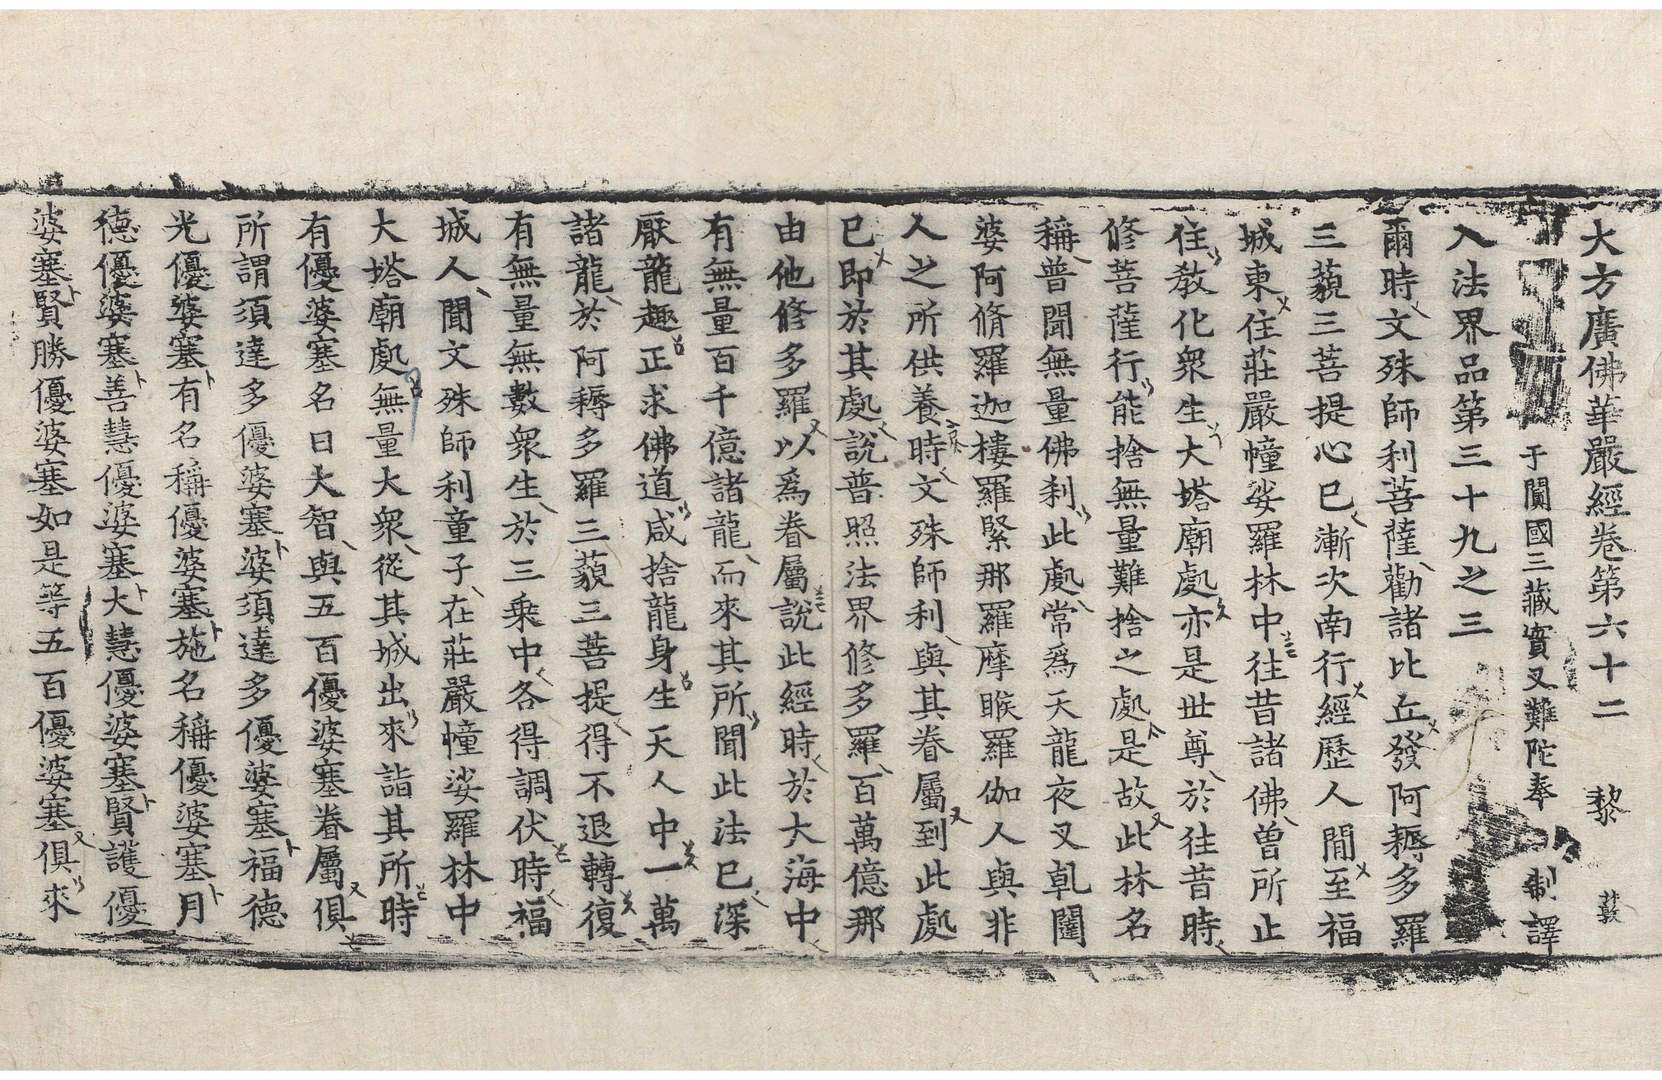 大方廣佛華嚴經卷第六十二 黎
于闐國三藏實叉難陁奉 制譯
入法界品第三十九之三
爾時文殊師利菩薩勸諸比丘發阿耨多羅
三藐三菩提心已漸次南行經歷人間至福
城東住莊嚴幢娑羅林中往昔諸佛曾所止
住教化衆生大塔廟處亦是世尊於往昔時
修菩薩行能捨無量難捨之處是故此林名
稱普聞無量佛剎此處常爲天龍夜叉乹闥
婆阿脩羅迦樓羅緊那羅摩睺羅伽人與非
人之所供養時文殊師利與其眷屬到此處
已即於其處說普照法界修多羅百萬億那
由他修多羅以爲眷屬說此經時於大海中
有無量百千億諸龍而來其所聞此法已深
厭龍趣正求佛道咸捨龍身生天人中一萬
諸龍於阿耨多羅三藐三菩提得不退轉復
有無量無數衆生於三乘中各得調伏時福
城人聞文殊師利童子在莊嚴幢娑羅林中
大塔廟處無量大衆從其城出來詣其所時
有優婆塞名曰大智與五百優婆塞眷屬俱
所謂須達多優婆塞婆須達多優婆塞福德
光優婆塞有名稱優婆塞施名稱優婆塞月
德優婆塞善慧優婆塞大慧優婆塞賢護優
婆塞賢勝優婆塞如是等五百優婆塞俱來